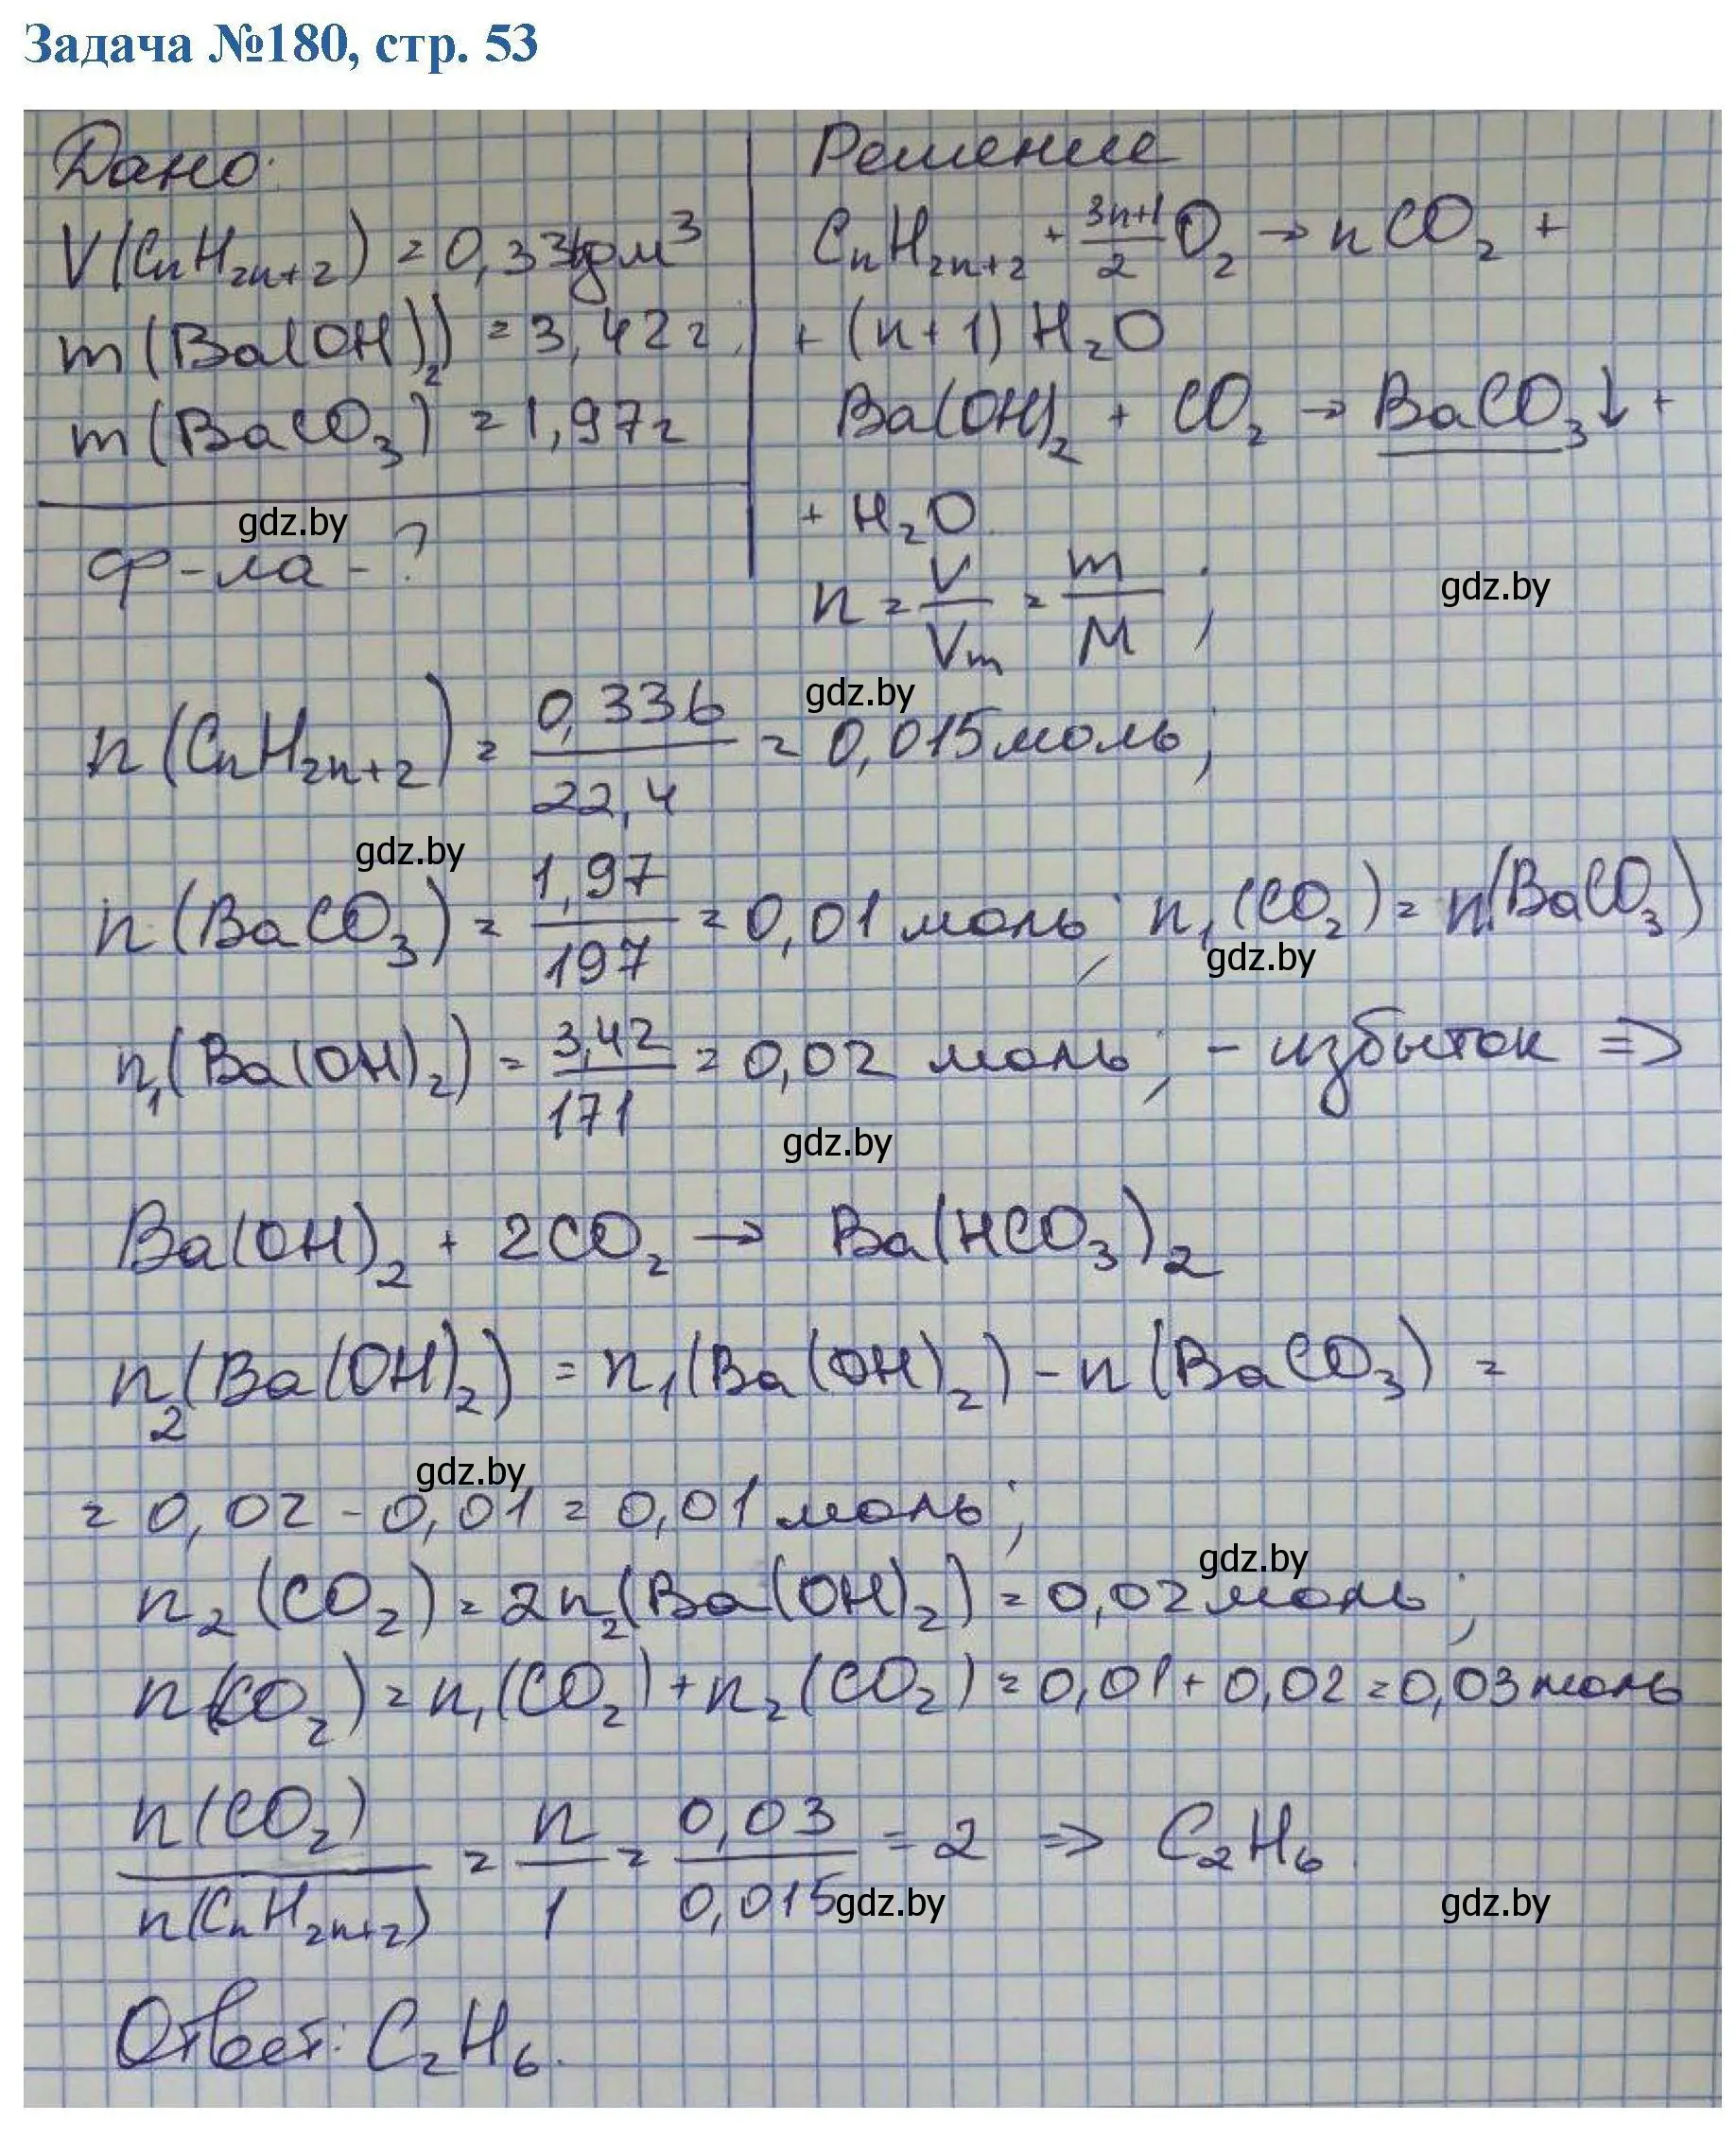 Задача №180, стр. 53
Дано:
V(CnH2n+2) = 0,336дм³
m(Ba(OH)2) = 3,42г
m(BaCO3) = 1,97г
ф-ла - ?
Решение
CnH2n+2 + 3n+1/2 O2 → nCO2 +
+ (n+1)H2O
Ba(OH)2 + CO2 → BaCO3↓ +
+ H2O.
n = V/Vm = m/M ;
n(CnH2n+2) = 0,336/22,4 = 0,015моль;
n(BaCO3) = 1,97/197 = 0,01 моль; n1(CO2) = n(BaCO3)
n1(Ba(OH)2) = 3,42/171 = 0,02 моль; - избыток =>
Ba(OH)2 + 2CO2 → Ba(HCO3)2
n2(Ba(OH)2) = n1(Ba(OH)2) - n(BaCO3) =
= 0,02 - 0,01 = 0,01 моль;
n2(CO2) = 2n2(Ba(OH)2) = 0,02моль;
n(CO2) = n1(CO2) + n2(CO2) = 0,01 + 0,02 = 0,03моль
n(CO2)/n(CnH2n+2) = n/1 = 0,03/0,015 = 2 => C2H6.
Ответ: C2H6.
gdz.by
gdz.by
gdz.by
gdz.by
gdz.by
gdz.by
gdz.by
gdz.by
gdz.by
gdz.by